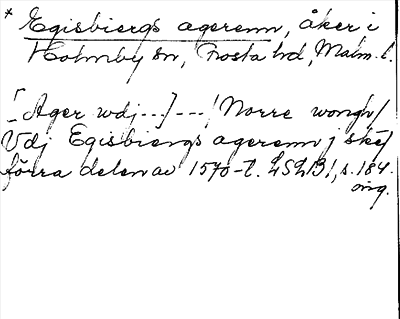 * Egisbiergs agerenn, åker i
Holmby sn, Frosta hd, Malm. l.
[Ager wdj---] ---/ Norre wongh/
Vdj Egisbiergs agerenn j ske/
förra delen av 1570-t. LSLB1, s. 184.
orig.